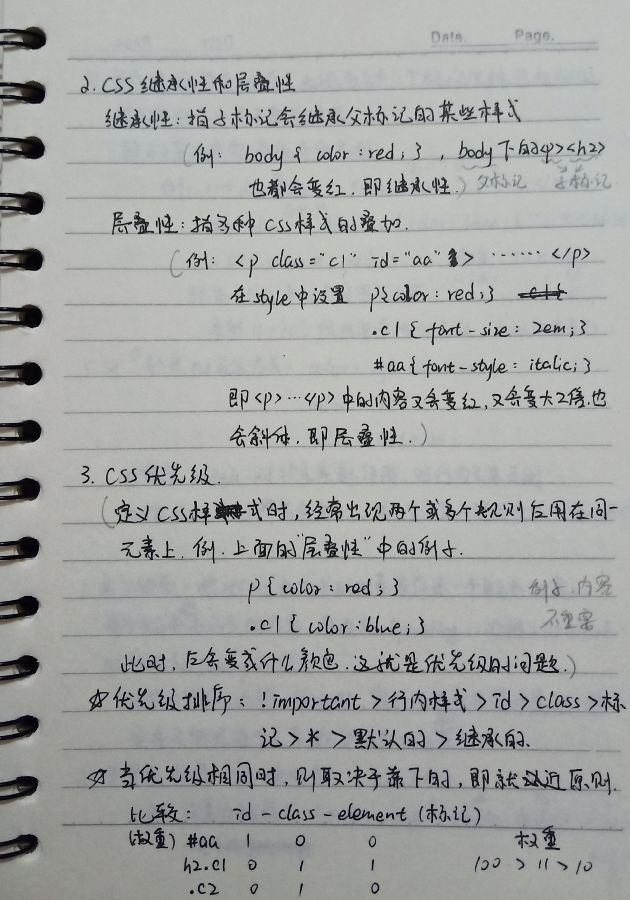 Date. Page.
2. CSS继承性和层叠性
继承性:指子标记会继承父标记的某些样式
(例: body { color:red; } , body下的<p><h2>
也都会变红,即继承性.) 父标记 子标记
层叠性:指多种CSS样式的叠加.
(例: <p class="c1" id="aa"> ······ </p>
在style中设置 p{color: red;}
.c1 { font-size: 2em; }
#aa { font-style: italic; }
即<p>…</p>中的内容又会变红,又会变大2倍,也
会斜体,即层叠性.)
3. CSS优先级.
(定义CSS样式时,经常出现两个或多个规则应用在同一
元素上,例.上面的"层叠性"中的例子.
p{color: red; } 例子.内容
.c1 { color:blue; } 不重要
此时,应会变成什么颜色.这就是优先级的问题.)
☆优先级排序: !important > 行内样式 > id > class > 标
记 > * > 默认的 > 继承的.
☆ 当优先级相同时,则取决于靠下的,即就近原则.
比较: id - class - element (标记)
(权重) #aa 1 0 0 权重
h2.c1 0 1 1 100 > 11 > 10
.c2 0 1 0